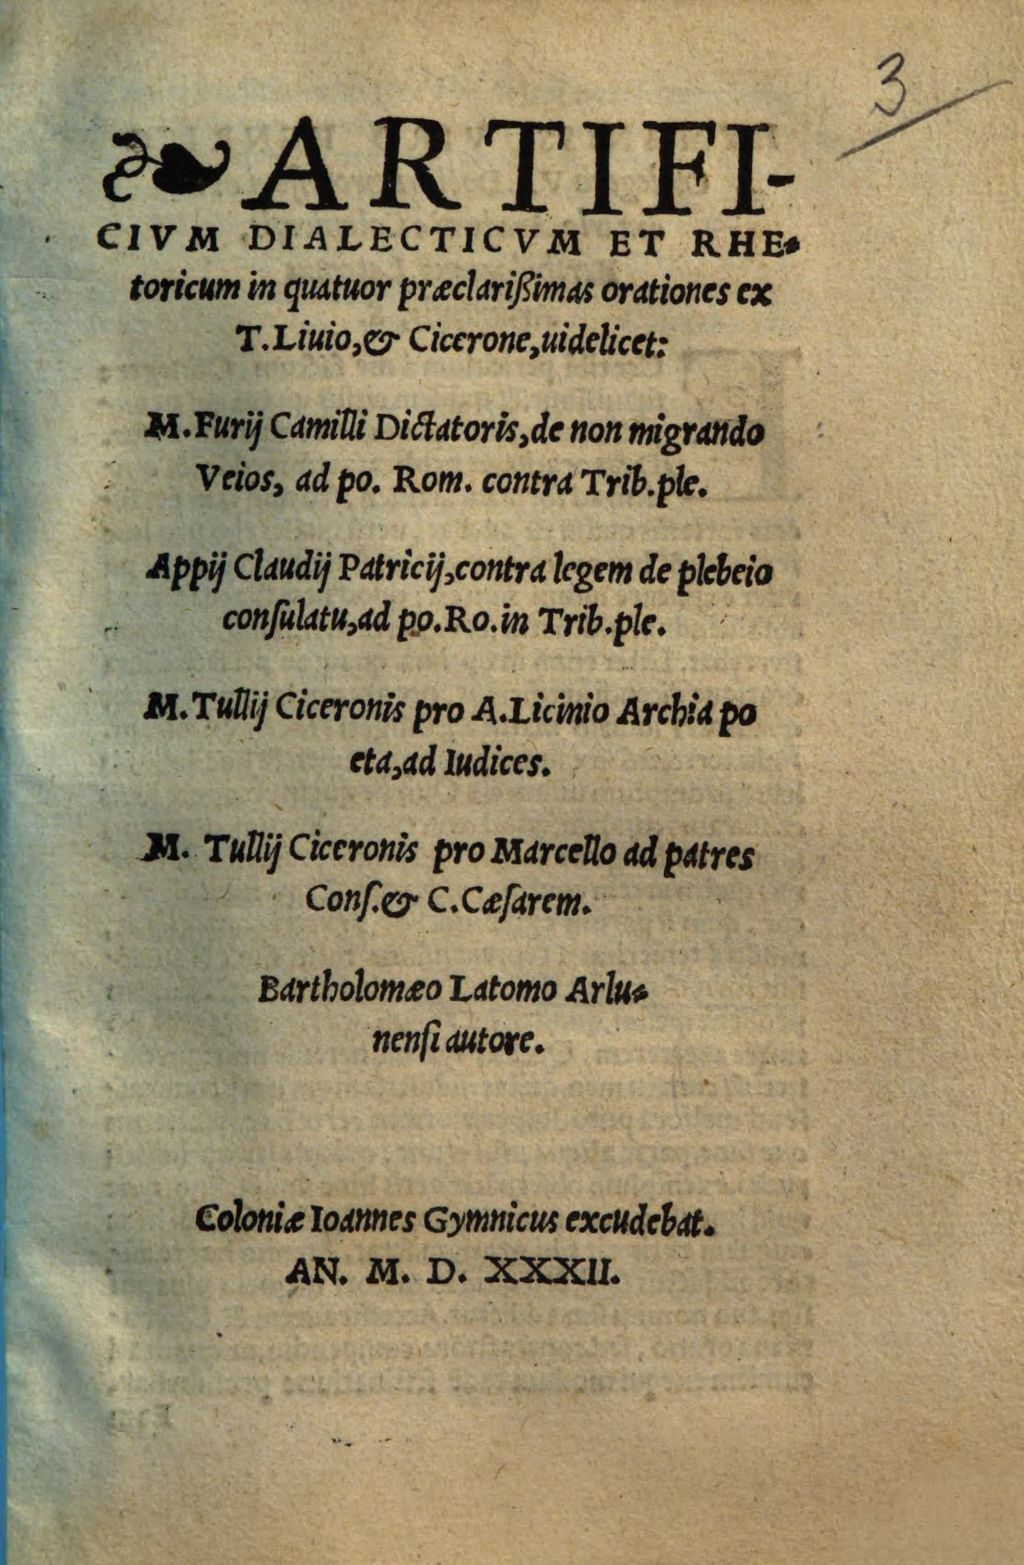 3
❧ ARTIFI-
CIVM DIALECTICVM ET RHE-
toricum in quatuor præclarißimas orationes ex
T. Liuio, & Cicerone, uidelicet:
M. Furij Camilli Dictatoris, de non migrando
Veios, ad po. Rom. contra Trib. ple.
Appij Claudij Patricij, contra legem de plebeio
conſulatu, ad po. Ro. in Trib. ple.
M. Tullij Ciceronis pro A. Licinio Archia po
eta, ad Iudices.
M. Tullij Ciceronis pro Marcello ad patres
Conſ. & C. Cæſarem.
Bartholomæo Latomo Arlu-
nenſi autore.
Coloniæ Ioannes Gymnicus excudebat.
AN. M. D. XXXII.